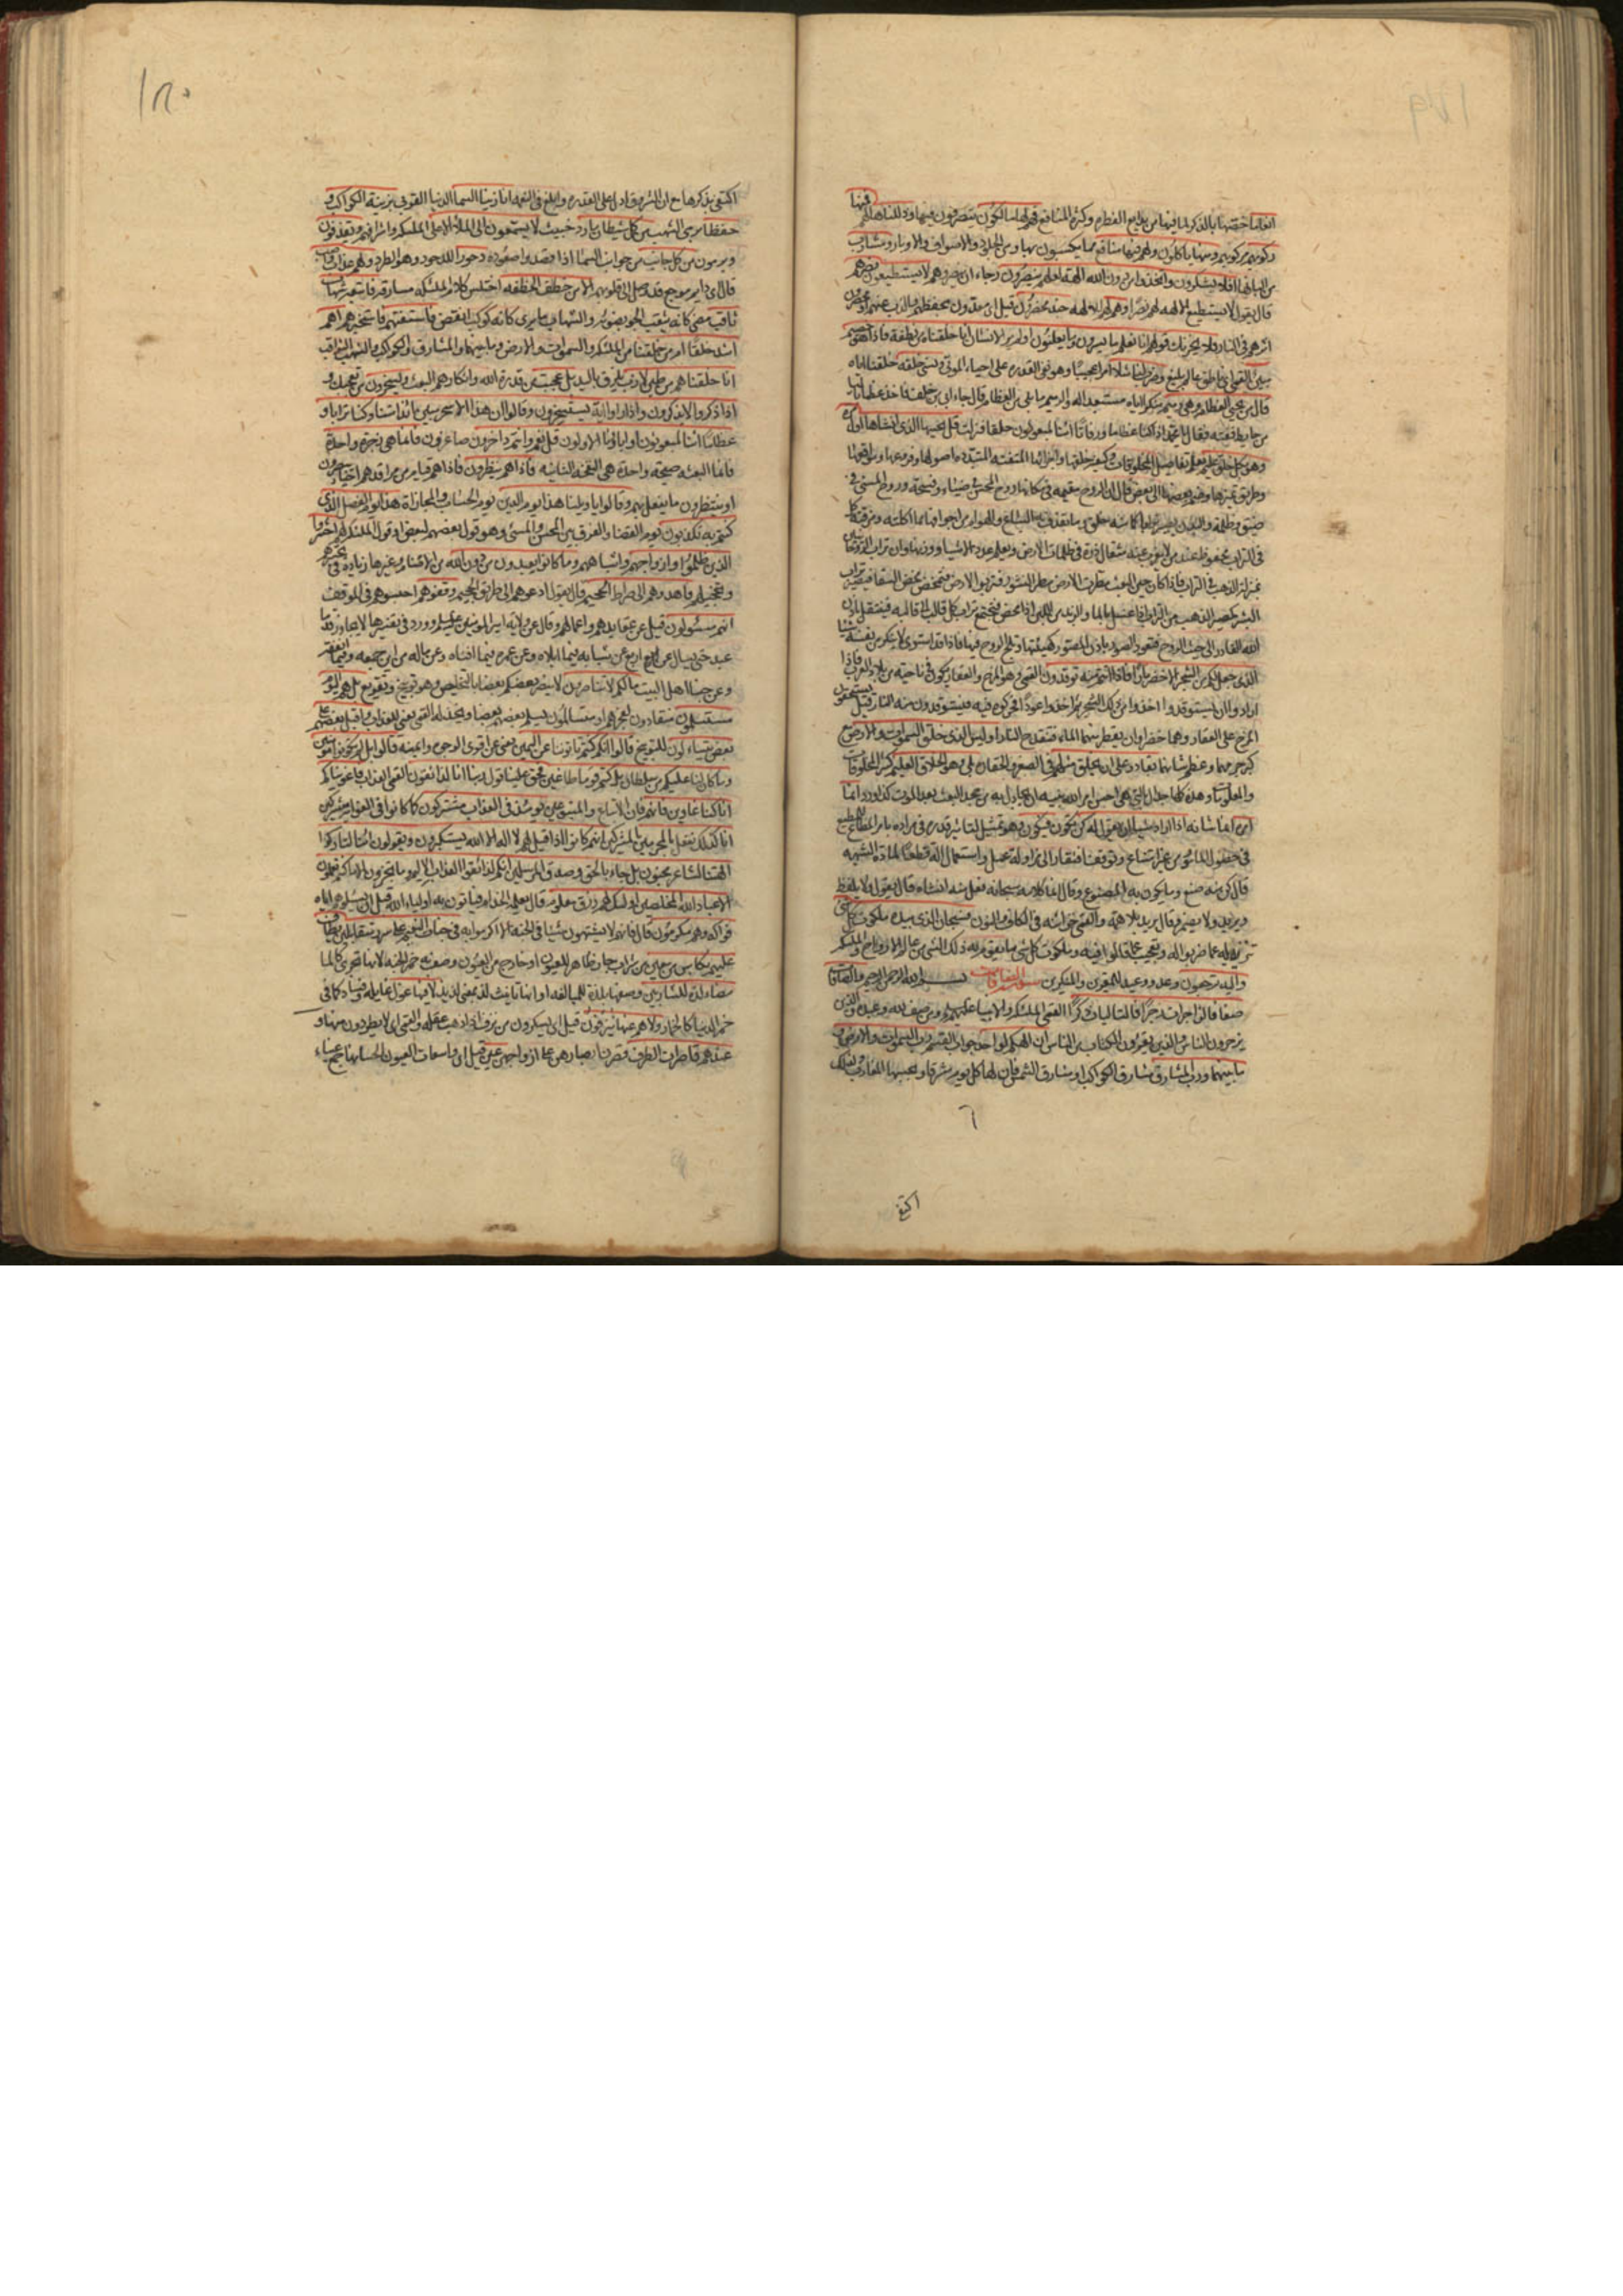 انعاما خصّها بالذكر لما فيها من بدايع الفطرة وكثرة المنافع فهم لها مالكون يتصرفون فيها وذللناها لهم فمنها
ركوبهم مركوبهم ومنها ياكلون ولهم فيها منافع مما يكسبون بها ومن الجلود والاصواف والاوبار ومشارب
من البانها افلا يشكرون واتخذوا من دون الله الهة لعلهم ينصرون رجاء ان ينصروهم لا يستطيعون نصرهم
قال يقول لا يستطيع الالهة لهم نصرا وهم لهم للالهة جند محضرون قيل اي معدون لحفظهم والذب عنهم او محضرون
اثرهم في النار فلا يحزنك قولهم انا نعلم ما يسرون وما يعلنون اولم ير الانسان انا خلقناه من نطفة فاذا هو خصيم
مبين القمي اي ناطق عالم بليغ وضرب لنا مثلا امرا عجيبا وهو نفي القدرة على احياء الموتى ونسي خلقه خلقنا اياه
قال من يحيي العظام وهي رميم منكرا اياه مستبعدا له والرميم ما بلي من العظام وقال جاء ابي بن خلف فاخذ عظما باليا
من حايط ففته فقال يا محمد اذا كنا عظاما ورفاتا ائنا لمبعوثون خلقا فنزلت قل يحييها الذي انشاها اول مرة
وهو بكل خلق عليم يعلم تفاصيل المخلوقات وكيفية خلقها واجزائها المتفتتة المتبددة اصولها وفروعها ومواقعها
وطريق تميزها وضم بعضها الى بعض قال ان الروح مقيمة في مكانها روح المحسن في ضياء وفسحة وروح المسيء في
ضيق وظلمة والبدن يصير ترابا كما منه خلق وما تقذف به السباع والهوام من اجوافها مما اكلته ومزقته كل
في التراب محفوظ عند من لا يعزب عنه مثقال ذرة في ظلمات الارض ويعلم عدد الاشياء ووزنها وان تراب الروحانيين
بمنزلة الذهب في التراب فاذا كان حين البعث مطرت الارض مطر النشور فتربو الارض فتمخض مخض السقا فيصير تراب
البشر كمصير الذهب من التراب اذا غسل بالماء والزبد من اللبن اذا مخض فيجتمع تراب كل قالب الى قالبه فينتقل باذن
الله القادر الى حيث الروح فتعود الصور باذن المصور كهيئتها وتلج الروح فيها فاذا قد استوى لا ينكر من نفسه شيئا
الذي جعل لكم من الشجر الاخضر نارا فاذا انتم منه توقدون القمي وهو المرخ والعفار يكون في ناحية من بلاد العرب فاذا
ارادوا ان يستوقدوا اخذوا من ذلك الشجر ثم اخذوا عودا فحركوه فيه فيستوقدون منه النار قيل يسحقون
المرخ على العفار وهما خضراوان يقطر منهما الماء فتنقدح النار اوليس الذي خلق السموات والارض
كبر جرمهما وعظم شانهما بقادر على ان يخلق مثلهم في الصغر والحقارة بلى وهو الخلاق العليم كثير المخلوقات
والمعلومات وهذه كلها جدال بالتي هي احسن امر الله نبيه ان يجادل به من يجحد البعث بعد الموت كذا ورد انما
امره انما شانه اذا اراد شيئا ان يقول له كن يكون فيكون فهو تمثيل لتاثير قدرته في مراده بامر المطاع للمطيع
في حصول المامور من غير امتناع وتوقف وافتقار الى مزاولة عمل واستعمال آلة قطعا لمادة الشبهة
قال كن منه صنع وما يكون به المصنوع وقال انما كلامه سبحانه فعل منه انشاه قال يقول ولا يلفظ
ويريد ولا يضمر وقال يريد بلا همة والقمي خزائنه في الكاف والنون فسبحان الذي بيده ملكوت كل شيء
تنزيه له عما ضربوا له وتعجيب عما قالوا فيه وملكوت كل شيء ما يقوم به ذلك الشيء من عالم الارواح والملائكة
واليه ترجعون وعد ووعيد للمقرين والمنكرين سورة الصافات بسم الله الرحمن الرحيم والصافات
صفا فالزاجرات زجرا فالتاليات ذكرا القمي الملئكة والانبياء عليهم ومن صف لله وعبده والذين
يزجرون الناس والذين يقرؤن الكتاب من الناس ان الهكم لواحد جواب القسم رب السموات والارض و
ما بينهما ورب المشارق مشارق الكواكب او مشارق الشمس فان لها كل يوم مشرقا وبحسبها المغارب ولذلك
٦
اكتفى
١٨٠
اكتفى بذكرها مع ان الشروق ادل على القدرة وابلغ في النعمة انا زينا السماء الدنيا القربى بزينة الكواكب و
حفظا برمي الشهب من كل شيطان مارد خبيث لا يسمعون الى الملأ الاعلى الملئكة واشرافهم ويقذفون
ويرمون من كل جانب من جوانب السماء اذا قصدوا صعوده دحورا للدحور وهو الطرد ولهم عذاب واصب
قال اي دايم موجع قد وصل الى قلوبهم الا من خطف الخطفة اختلس كلام الملئكة مسارقة فاتبعه شهاب
ثاقب مضيء كانه يثقب الجو بضوئه والشهاب ما يرى كانه كوكب انقض فاستفتهم فاستخبرهم اهم
اشد خلقا ام من خلقنا من الملئكة والسموات والارض وما بينهما والمشارق والكواكب والشهب الثواقب
انا خلقناهم من طين لازب يلزق باليد بل عجبت من قدرة الله وانكارهم البعث ويسخرون من تعجبك و
اذا ذكروا لا يذكرون واذا راوا اية يستسخرون وقالوا ان هذا الا سحر مبين ائذا متنا وكنا ترابا و
عظاما ائنا لمبعوثون اواباؤنا الاولون قل نعم وانتم داخرون صاغرون فانما هي زجرة واحدة
فانما البعثة صيحة واحدة هي النفخة الثانية فاذا هم ينظرون فاذا هم قيام من مراقدهم احياء يبصرون
او ينتظرون ما يفعل بهم وقالوا يا ويلنا هذا يوم الدين يوم الحساب والمجازاة هذا يوم الفصل الذي
كنتم به تكذبون يوم القضاء والفرق بين المحسن والمسيء وهو قول بعضهم لبعض او قول الملئكة لهم احشروا
الذين ظلموا وازواجهم واشباههم وما كانوا يعبدون من دون الله من الاصنام وغيرها زيادة في تحسرهم
وتخجيلهم فاهدوهم الى صراط الجحيم قال يقول ادعوهم الى طريق الجحيم وقفوهم احبسوهم في الموقف
انهم مسئولون قيل عن عقايدهم واعمالهم وقال عن ولاية امير المؤمنين عليه وورد في تفسيرها لا يجاوز قدما
عبد حتى يسال عن اربع عن شبابه فيما ابلاه وعن عمره فيما افناه وعن ماله من اين جمعه وفيما انفقه
وعن حبنا اهل البيت ما لكم لا تناصرون لا ينصر بعضكم بعضا بالتخليص وهو توبيخ وتقريع بل هم اليوم
مستسلمون منقادون لعجزهم او متسالمون يسلم بعضهم بعضا ويخذله القمي يعني للعذاب واقبل بعضهم على
بعض يتساءلون للتوبيخ قالوا انكم كنتم تاتوننا عن اليمين يعني عن اقوى الوجوه وايمنه قالوا بل لم تكونوا مؤمنين
وما كان لنا عليكم من سلطان بل كنتم قوما طاغين فحق علينا قول ربنا انا لذائقون القمي العذاب فاغويناكم
انا كنا غاوين فانهم فان الاتباع والمتبوعين يومئذ في العذاب مشتركون كما كانوا في الغواية مشتركين
انا كذلك نفعل بالمجرمين بالمشركين انهم كانوا اذا قيل لهم لا اله الا الله يستكبرون ويقولون ائنا لتاركوا
الهتنا لشاعر مجنون بل جاء بالحق وصدق المرسلين انكم لذائقوا العذاب الاليم وما تجزون الا ما كنتم تعملون
الا عباد الله المخلصين اولئك لهم رزق معلوم قال يعلمه الخدام فياتون به اولياء الله قبل ان يسئلوهم اياه
فواكه وهم مكرمون قال فانهم لا يشتهون شيئا في الجنة الا اكرموا به في جنات النعيم على سرر متقابلين يطاف
عليهم بكاس من معين من شراب جار ظاهر للعيون او خارج من العيون وصف به خمر الجنة لانها تجري كالماء
بيضاء لذة للشاربين وصفها بلذة للمبالغة او انها تانيث لذ بمعنى لذيذ لا فيها غول غايلة وفساد كما في
خمر الدنيا كالخمار ولا هم عنها ينزفون قيل اي يسكرون من نزف اذا ذهب عقله والقمي اي لا يطردون منها و
عندهم قاصرات الطرف قصرن ابصارهن على ازواجهن عين قيل اي واسعات العيون لحسانها جمع عيناء